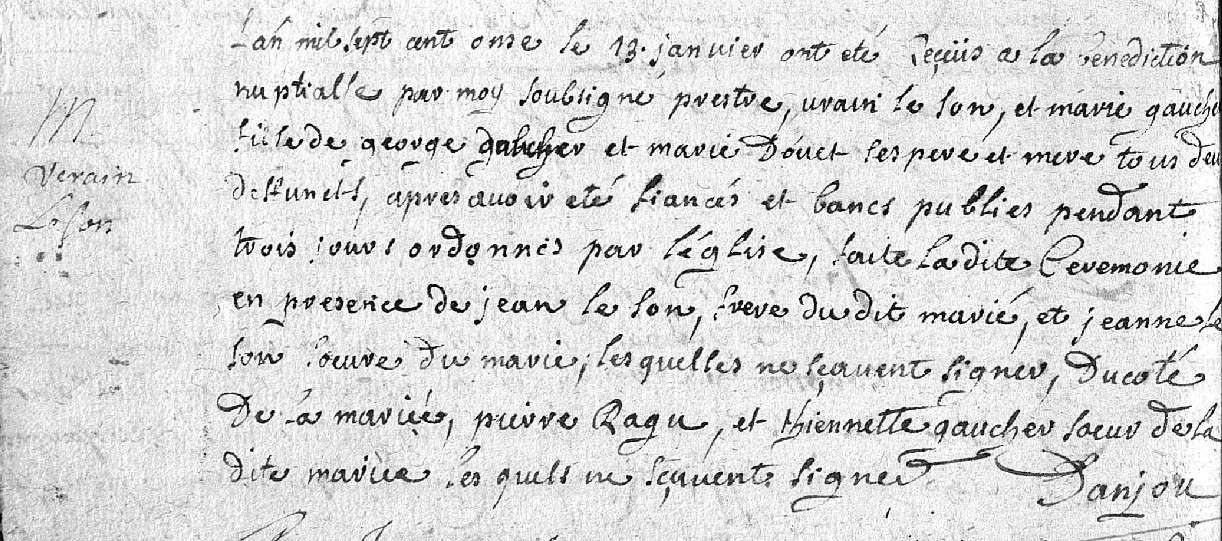 L'an mil sept cent onse le 13. janvier ont eté reçüs a la benediction
nuptialle par moy soubsigné prestre, urain le son, et marie gaucher
fille de george gaucher et marie Doüet ses pere et mere tous deux
deffuncts, apres avoir eté fiancés et bancs publies pendant
trois jours ordonnes par l'église, faite la dite Ceremonie
en presence de jean le son, frere du dit marié, et jeanne le
son soeure du marie, les quelles ne sçavent signer, Du coté
De la mariée, pierre Ragu, et thiennette gaucher soeur de la
dite mariee les quels ne sçavent signer
Danjou
M
Verain
Leson